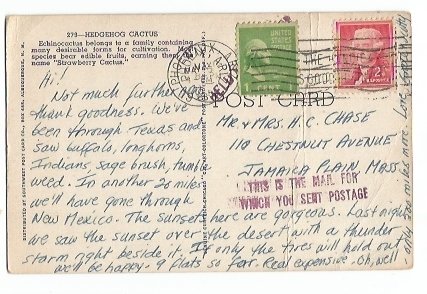 279—HEDGEHOG CACTUS
Echinocactus belongs to a family containing
many desirable forms for cultivation. Many
species bear edible fruits, earning them the
name "Strawberry Cactus."
Hi!
Not much further,
thank goodness. We've
been through Texas and
saw buffalo, longhorns,
Indians, sage brush, tumble
weed. In another 20 miles
we'll have gone through
New Mexico. The sunsets here are gorgeous. Last night
we saw the sunset over the desert with a thunder
storm right beside it. If only the tires will hold out
we'll be happy. 9 flats so far. Real expensive. Oh, well
only 500 miles more. Love
POST CARD
1 CENT
2¢
JEFFERSON
Mr. & Mrs. H.C. CHASE
110 CHESTNUT AVENUE
JAMAICA PLAIN MASS.
THIS IS THE MAIL FOR
WHICH YOU SENT POSTAGE
DISTRIBUTED BY SOUTHWEST POST CARD CO., BOX 685, ALBUQUERQUE, N. M.